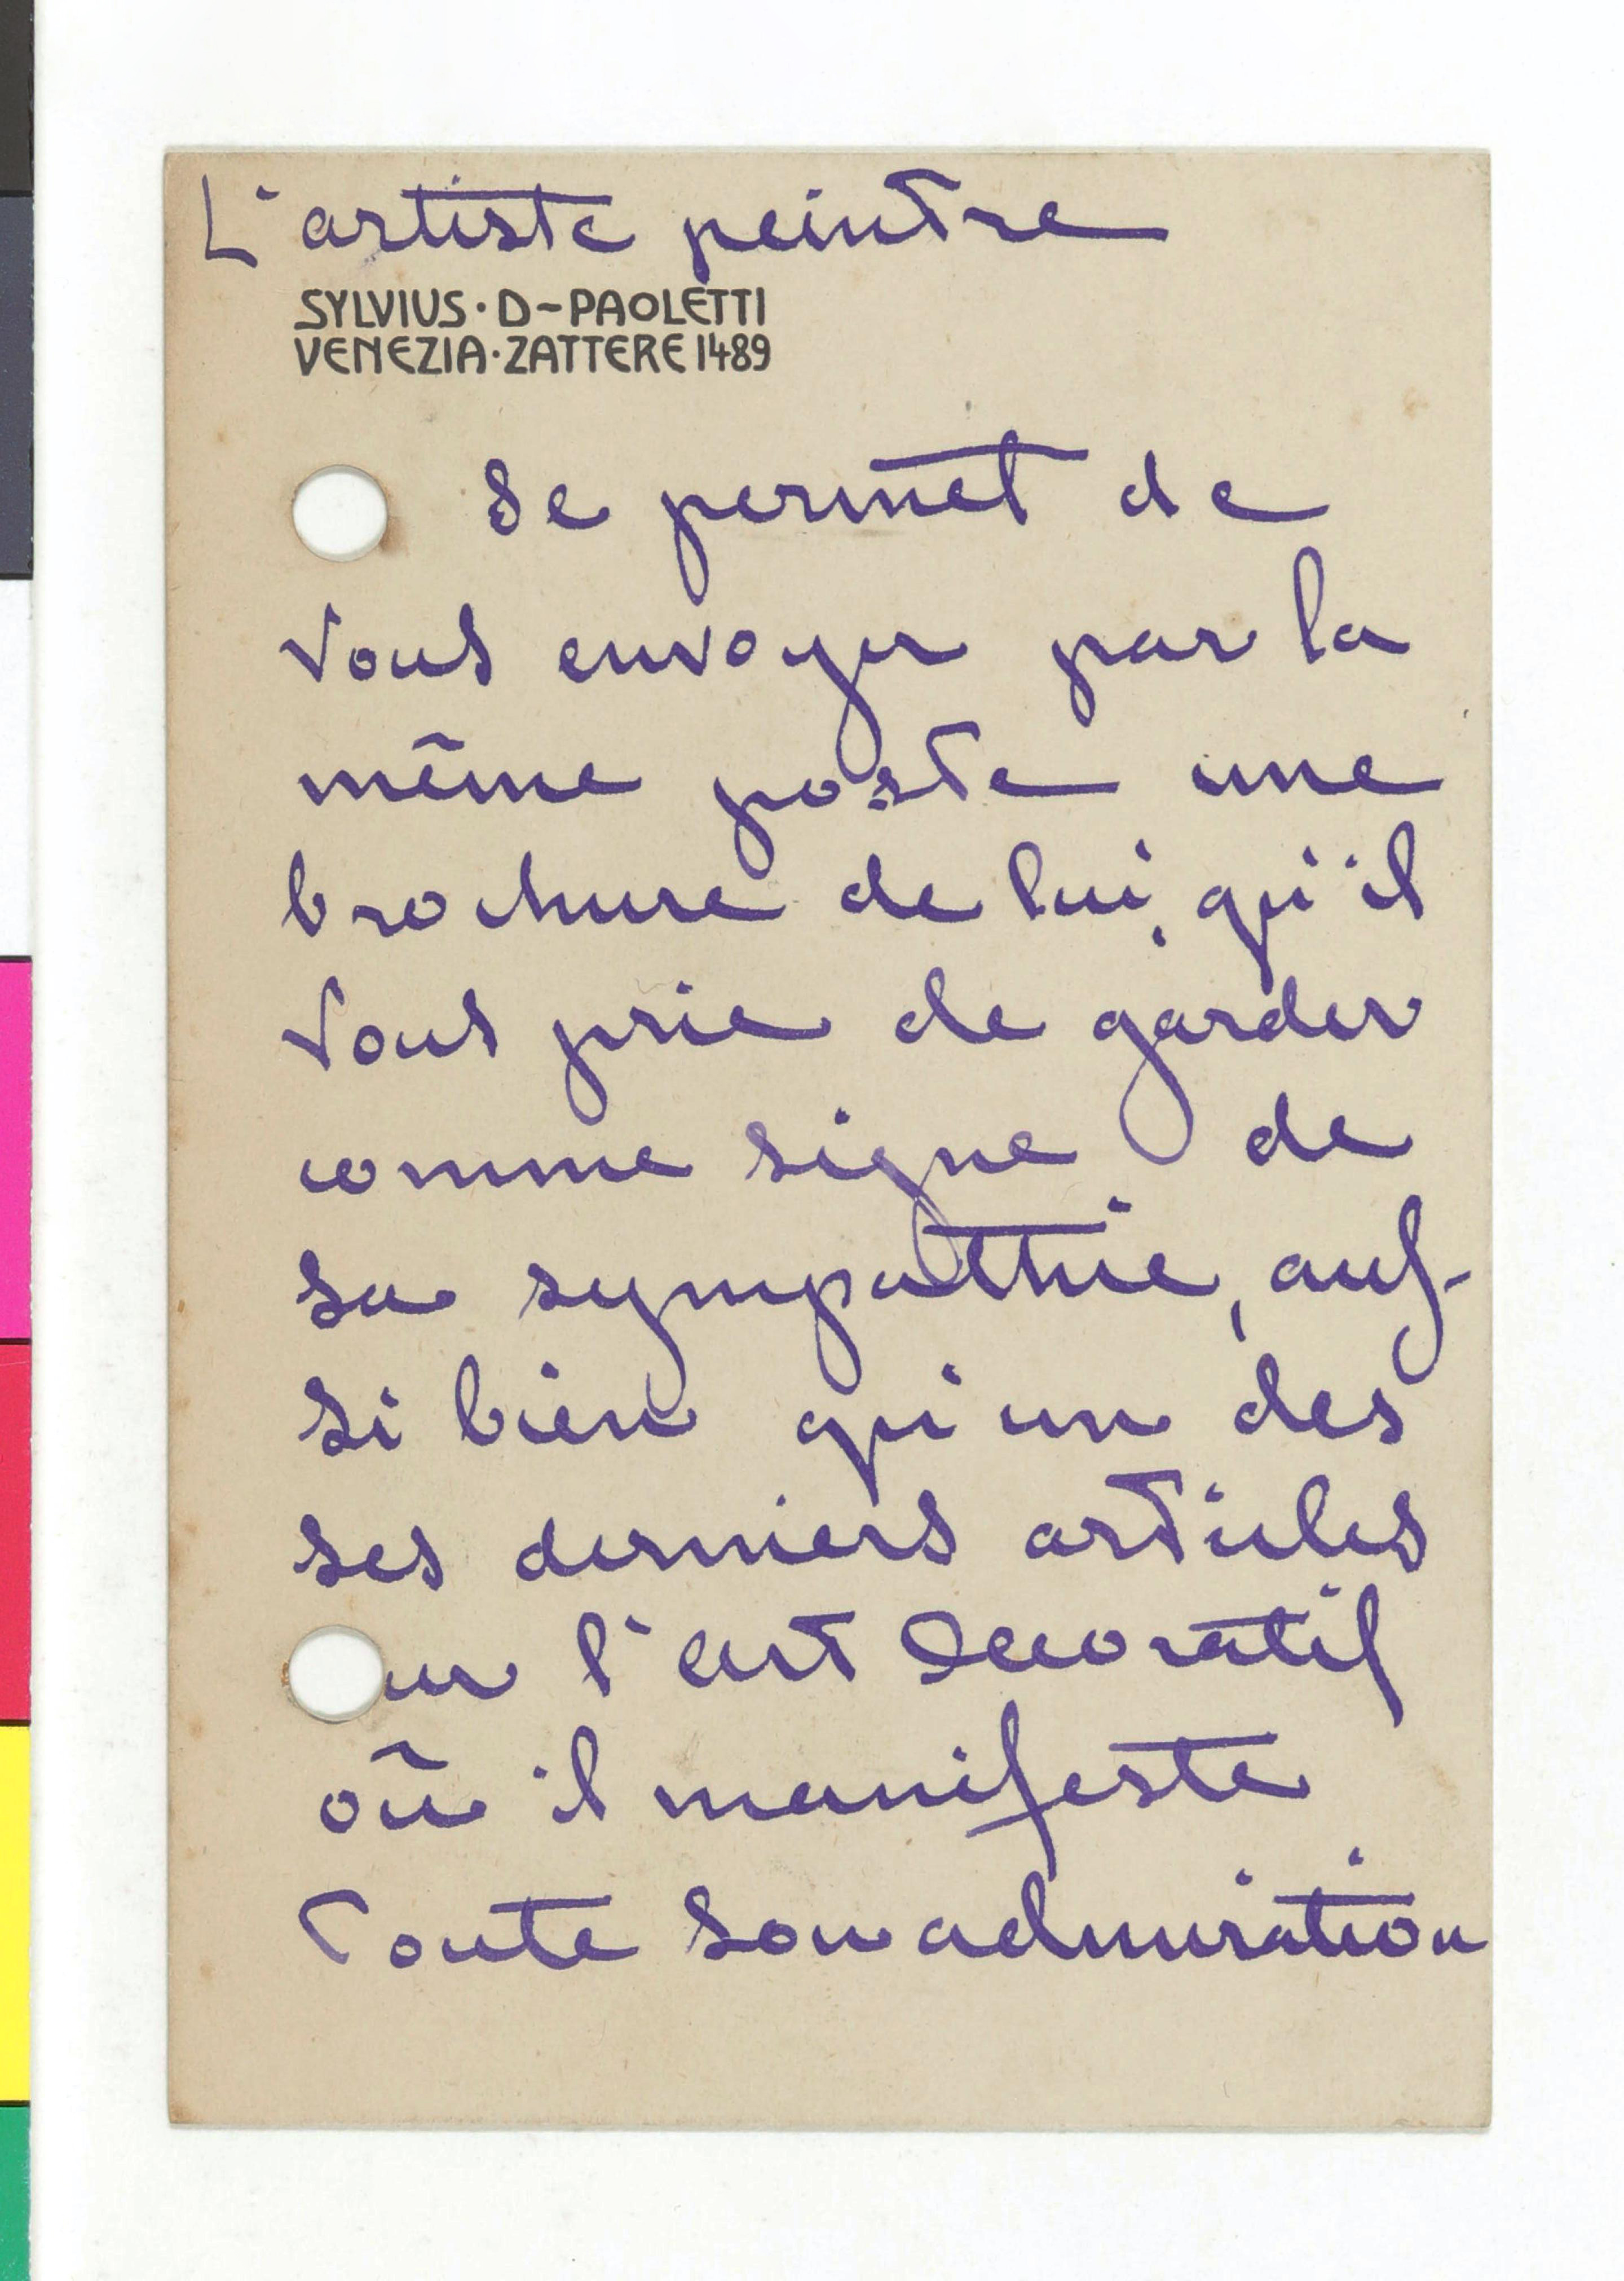 L'artiste peintre
SYLVIUS · D-PAOLETTI
VENEZIA · ZATTERE 1489
se permet de
vous envoyer par la
même poste une
brochure de lui, qu'il
vous prie de garder
comme signe de
sa sympathie, aus-
si bien qu'un des
ses derniers articles
ur l'art Decoratif
où il manifeste
toute son admiration